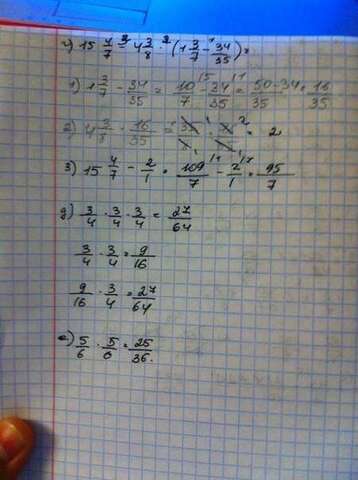 г) 15 4/7 - 4 3/8 · (1 3/7 - 34/35) =
1) 1 3/7 - 34/35 = 10/7 - 34/35 = 50-34/35 = 16/35
2) 4 3/8 · 16/35 = 35/8 · 16/35 = 2
3) 15 4/7 - 2/1 = 109/7 - 2/1 = 95/7
д) 3/4 · 3/4 · 3/4 = 27/64
3/4 · 3/4 = 9/16
9/16 · 3/4 = 27/64
е) 5/6 · 5/6 = 25/36.